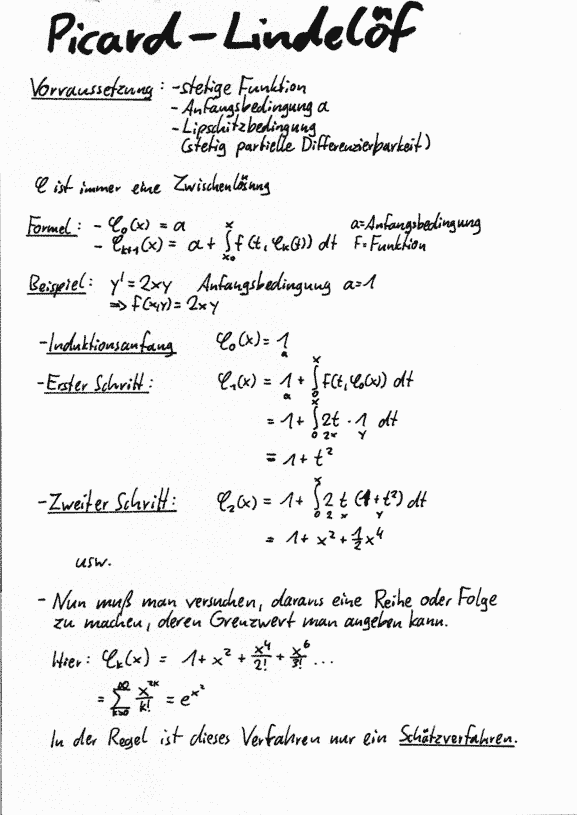 Picard-Lindelöf
Vorraussetzung: -stetige Funktion
- Anfangsbedingung a
- Lipschitzbedingung
(stetig partielle Differenzierbarkeit)
φ ist immer eine Zwischenlösung
Formel: - φ₀(x) = a    a=Anfangsbedingung
- φₖ₊₁(x) = a + ∫ₓ₀ˣ f(t, φₖ(t)) dt    F=Funktion
Beispiel: y' = 2xy    Anfangsbedingung a=1
⇒ f(x,y) = 2xy
-Induktionsanfang    φ₀(x) = 1
a
-Erster Schritt:    φ₁(x) = 1 + ∫₀ˣ f(t, φ₀(x)) dt
a
= 1 + ∫₀ˣ 2t · 1 dt
2x y
= 1 + t²
-Zweiter Schritt:    φ₂(x) = 1 + ∫₀ˣ 2 t (1+t²) dt
2 x y
= 1 + x² + 1/2 x⁴
usw.
- Nun muß man versuchen, daraus eine Reihe oder Folge
zu machen, deren Grenzwert man angeben kann.
Hier: φₖ(x) = 1 + x² + x⁴/2! + x⁶/3! ...
= ∑ₖ₌₀^∞ x²ᵏ/k! = e^x²
In der Regel ist dieses Verfahren nur ein Schätzverfahren.